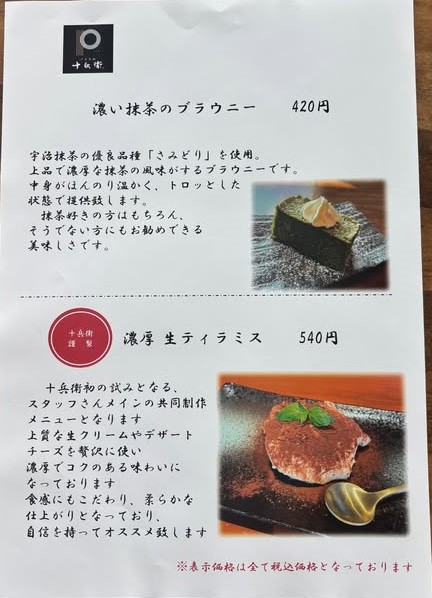 十兵衛
濃い抹茶のブラウニー 420円
宇治抹茶の優良品種「さみどり」を使用。
上品で濃厚な抹茶の風味がするブラウニーです。
中身がほんのり温かく、トロッとした
状態で提供致します。
抹茶好きの方はもちろん、
そうでない方にもお勧めできる
美味しさです。
十兵衛
謹製
濃厚 生ティラミス 540円
十兵衛初の試みとなる、
スタッフさんメインの共同制作
メニューとなります
上質な生クリームやデザート
チーズを贅沢に使い
濃厚でコクのある味わいに
なっております
食感にもこだわり、柔らかな
仕上がりとなっており、
自信を持ってオススメ致します
※表示価格は全て税込価格となっております